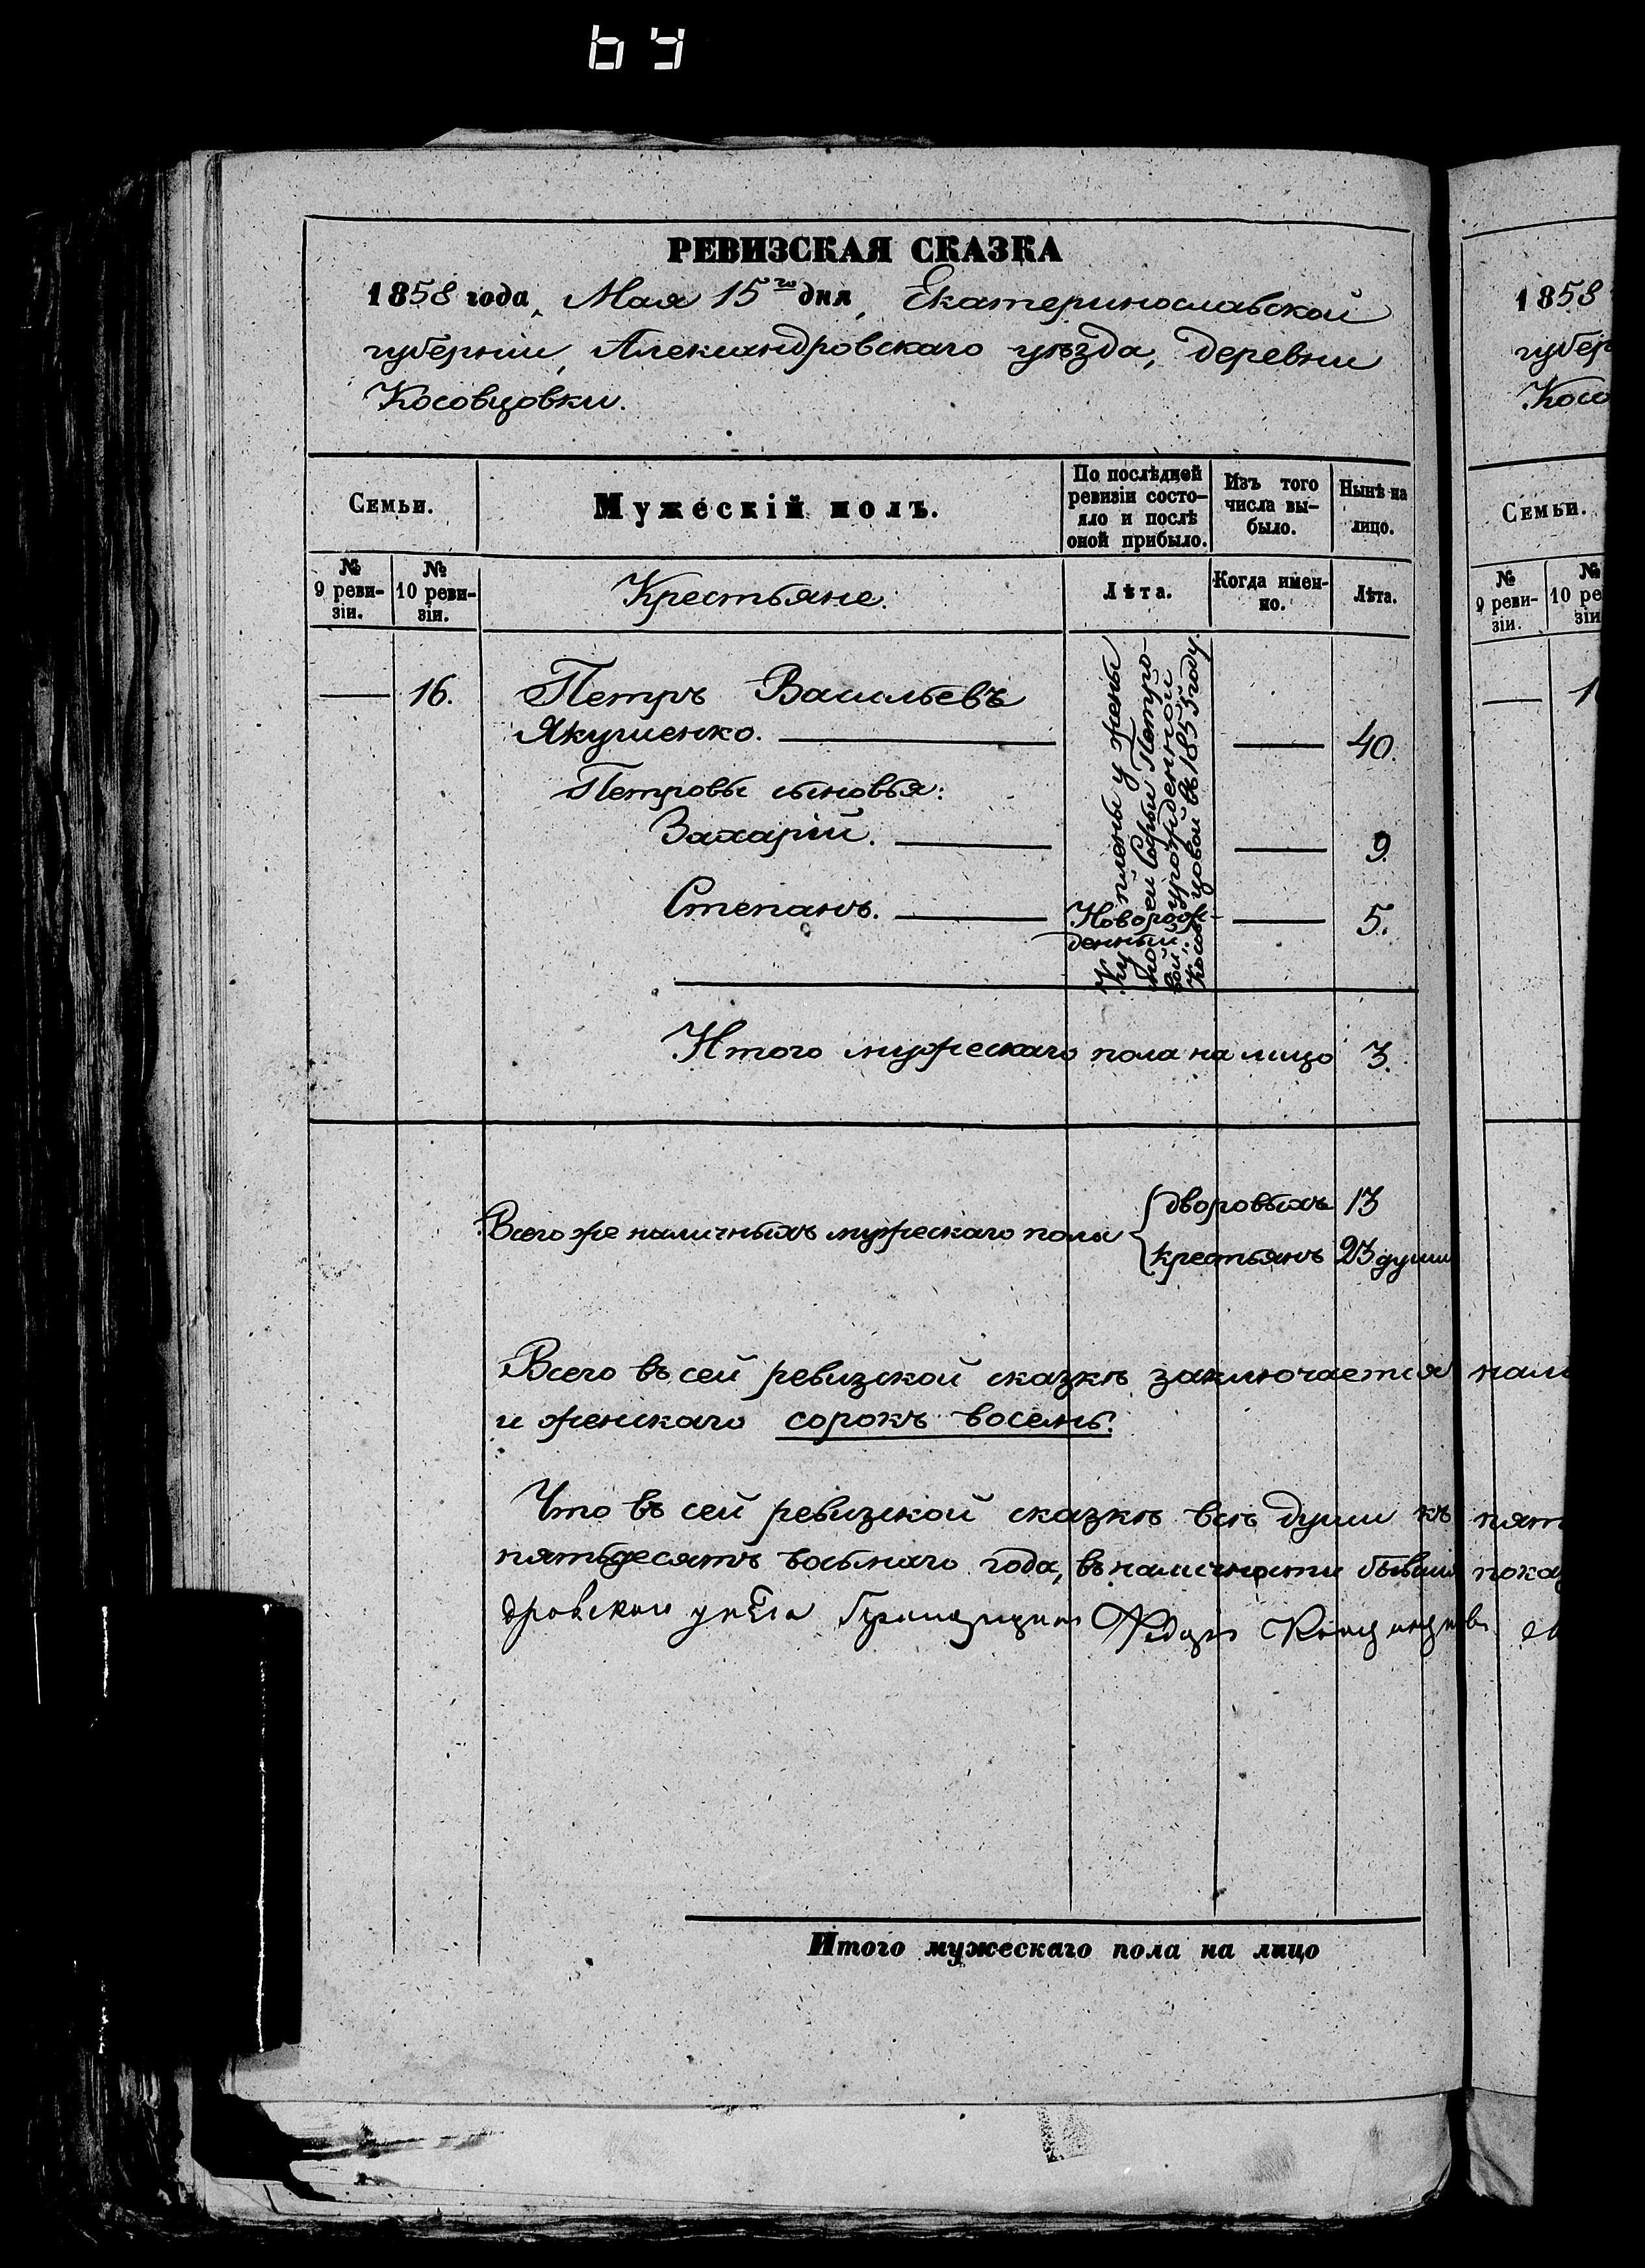 РЕВИЗСКАЯ СКАЗКА
1858 года, Мая 15го дня, Екатеринославской
губерніи, Александровскаго уѣзда, деревни
Косовцовки.
Семьи.
Мужескій полъ.
По послѣдней
ревизіи состо-
яло и послѣ
оной прибыло.
Изъ того
числа вы-
было.
Нынѣ на
лицо.
№
9 реви-
зіи.
№
10 реви-
зіи.
Крестьяне.
Лѣта.
Когда имен-
но.
Лѣта.
16. Петръ Васильевъ
Якушенко. 40.
Петровы сыновья:
Захарій. 9.
Степанъ. Новорож- 5.
денный.
Куплены у жены
Софьи Петро-
вой, урожденной
Косовцовой въ 1855 году.
Итого мужескаго пола на лицо 3.
Всего же наличныхъ мужескаго пола
дворовыхъ 13
крестьянъ 23 души
Всего въ сей ревизской сказкѣ заключается
и женскаго сорокъ восемь.
Что въ сей ревизской сказкѣ всѣ души къ
пятьдесятъ восьмаго года, въ наличности бывшія
дровскаго уѣзда
Итого мужескаго пола на лицо
1858
губер
Косо
Семьи.
№
9 реви-
зіи.
№
10 ре
зіи
1
нали
пят
пока